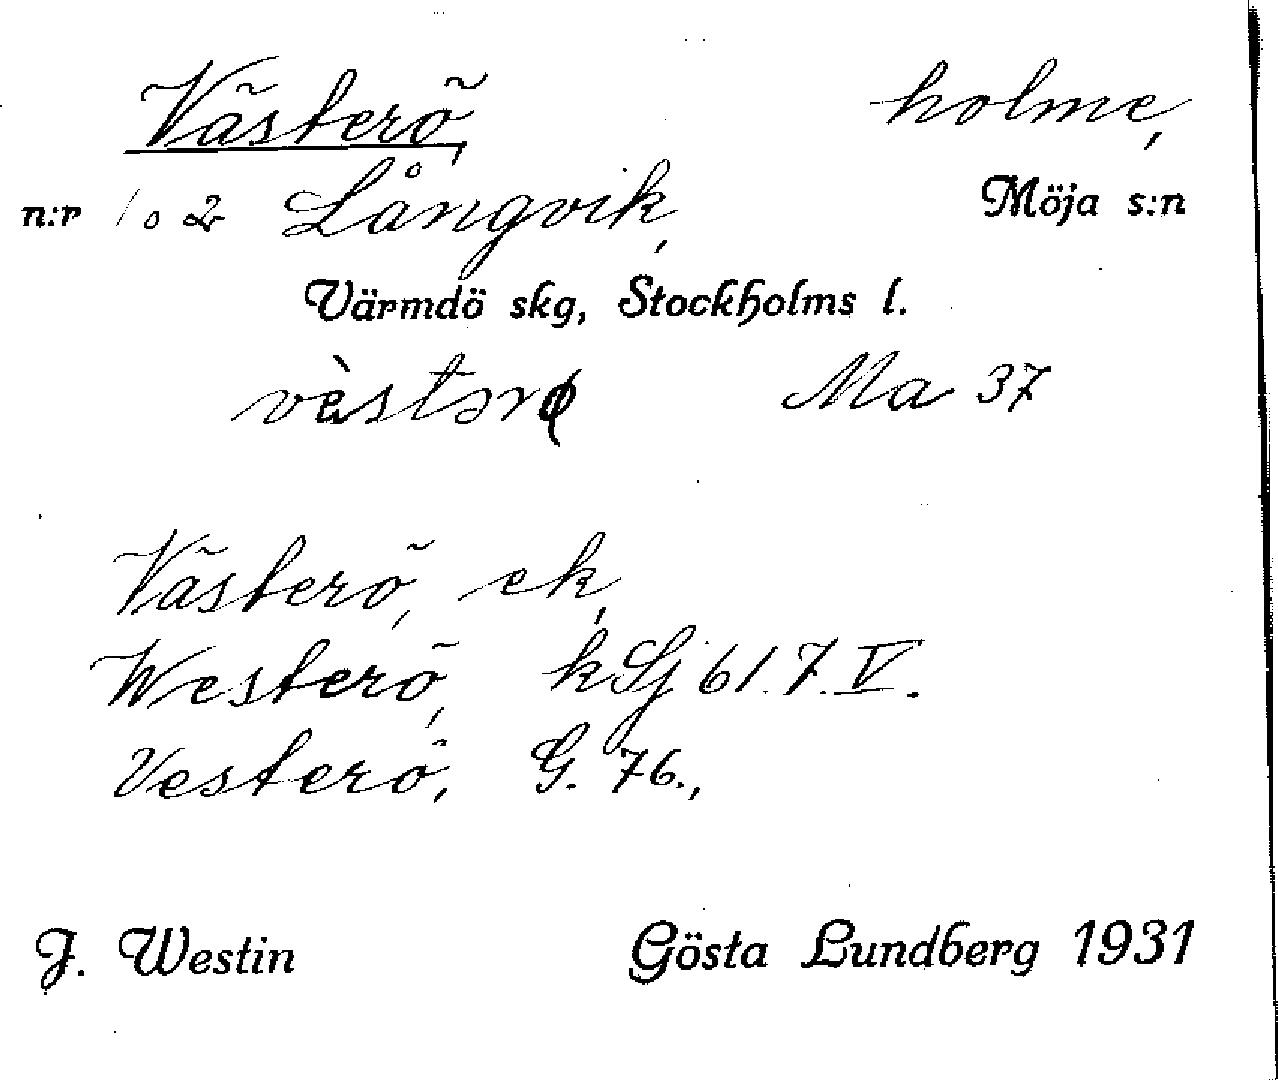 Västerö, holme,
n:r 1 o 2 Långvik, Möja s:n
Värmdö skg, Stockholms l.
vèstərø Ma 37
Västerö, ek,
Westerö, kSj 61.7.V.
Vesterö, G. 76.,
J. Westin Gösta Lundberg 1931